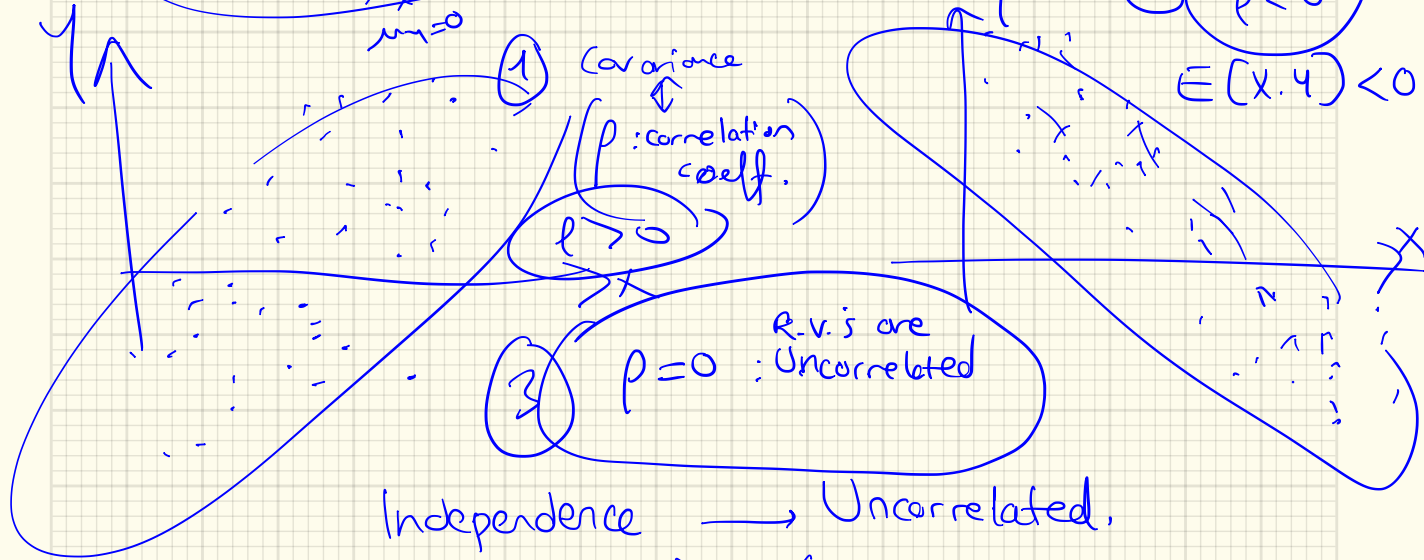 y
μy=0
① Covariance
↕
(ρ : correlation
coeff.)
ρ > 0
x
ρ < 0
E[X.Y] < 0
x
③ ρ = 0 : R.V.'s are
Uncorrelated
Independence → Uncorrelated.